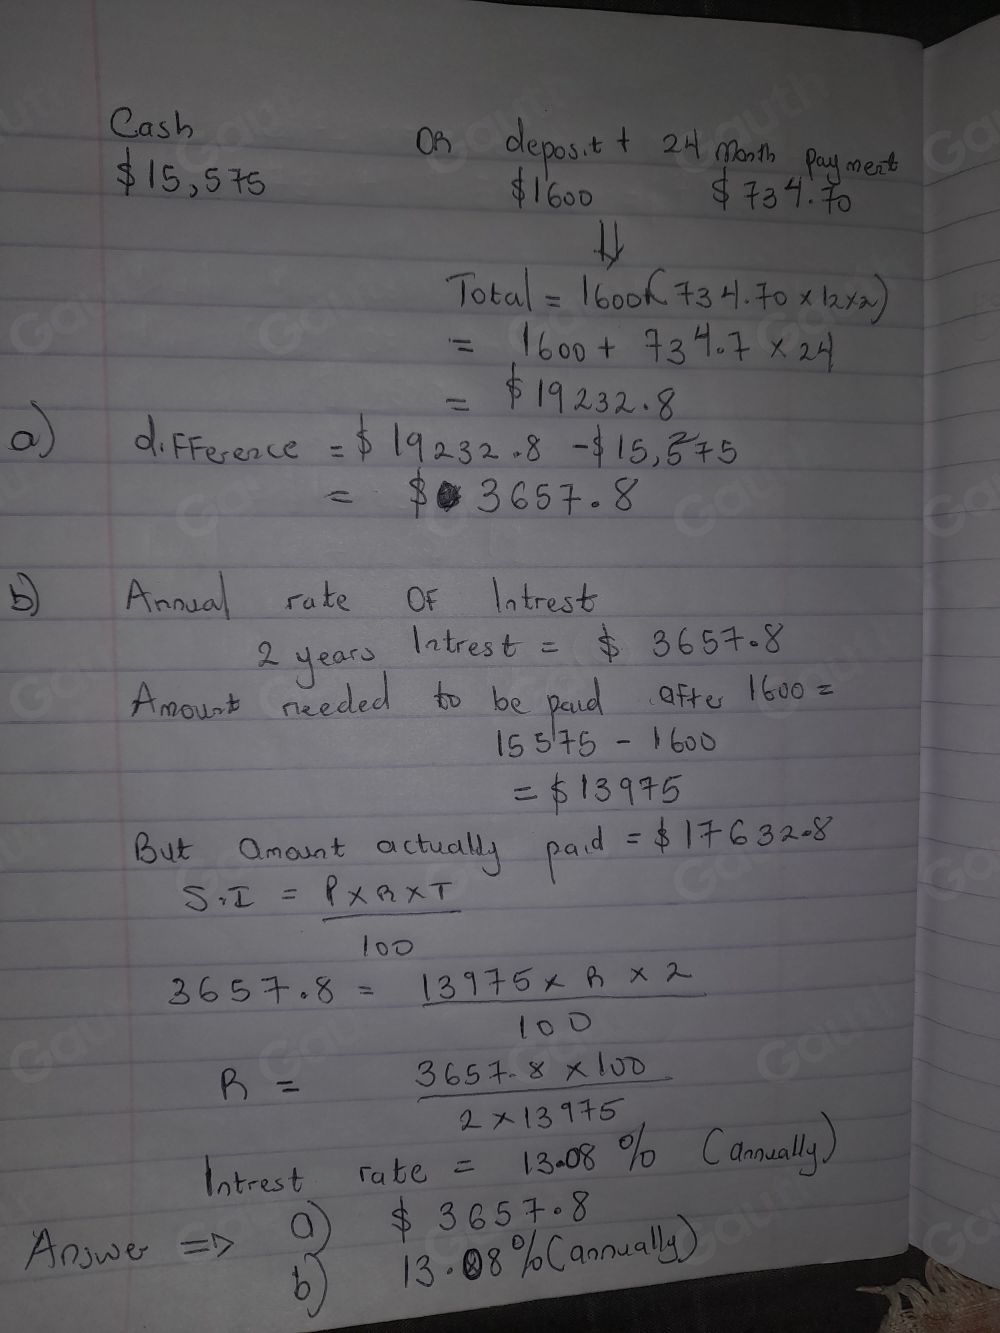 Cash OR deposit + 24 Month payment
$15,575 $1600 $734.70
⇓
Total = 1600+(734.70 x 12x2)
= 1600 + 734.7 x 24
= $19232.8
a) difference = $19232.8 - $15,575
= $ 3657.8
b) Annual rate OF Intrest
2 years Intrest = $ 3657.8
Amount needed to be paid after 1600 =
15575 - 1600
= $13975
But amount actually paid = $17632.8
S.I = P x R x T
100
3657.8 = 13975 x R x 2
100
R = 3657.8 x 100
2 x 13975
Intrest rate = 13.08 % (annually)
Answer => a) $ 3657.8
b) 13.08%(annually)
Gauth